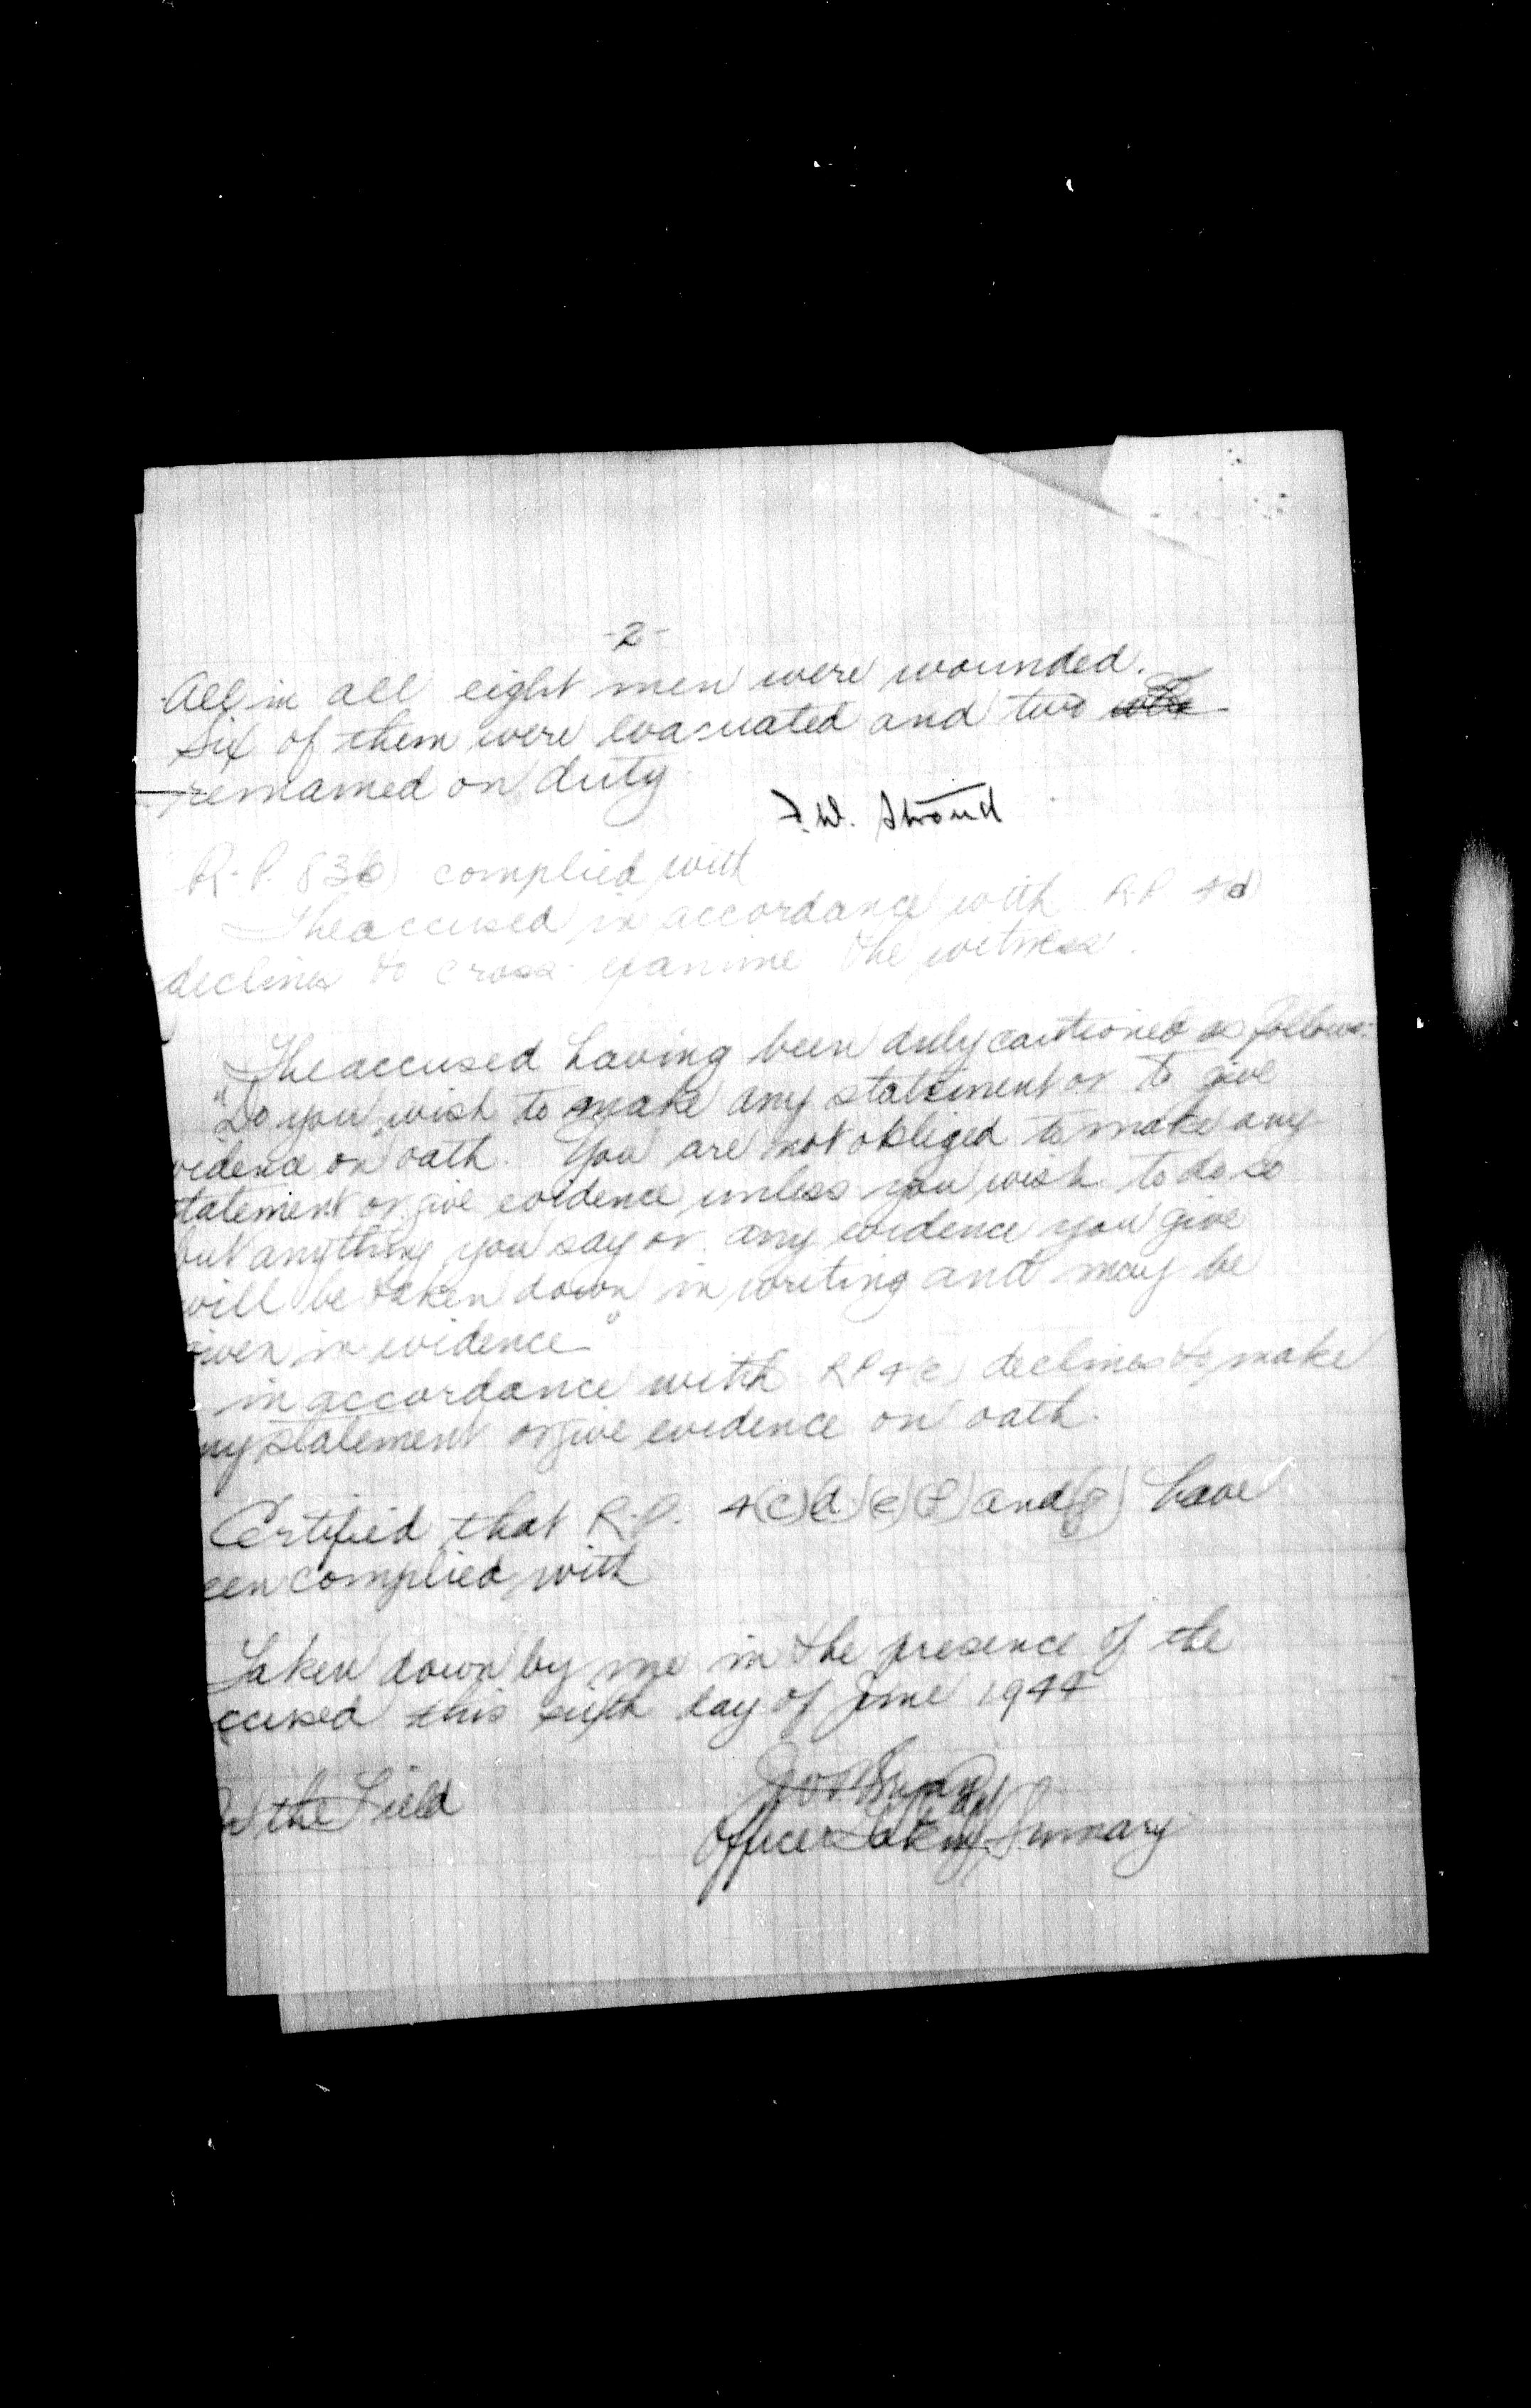 -2-
All in all eight men were wounded.
Six of them were evacuated and two
remained on duty
F.W. Stroud
R.P. 83(b) complied with
The accused in accordance with R.P. 4(d)
declines to cross-examine the witness.
The accused having been duly cautioned as follows:-
"Do you wish to make any statement or to give
vidence on oath. You are not obliged to make any
tatement or give evidence unless you wish to do so
but anything you say or any evidence you give
will be taken down in writing and may be
iven in evidence"
in accordance with RP 4(e) declines to make
ny statement or give evidence on oath.
Certified that R.P. 4(c)(d)(e)(f) and (g) have
een complied with
Taken down by me in the presence of the
ccused this sixth day of June 1944
In the Field
Officer Taking Summary